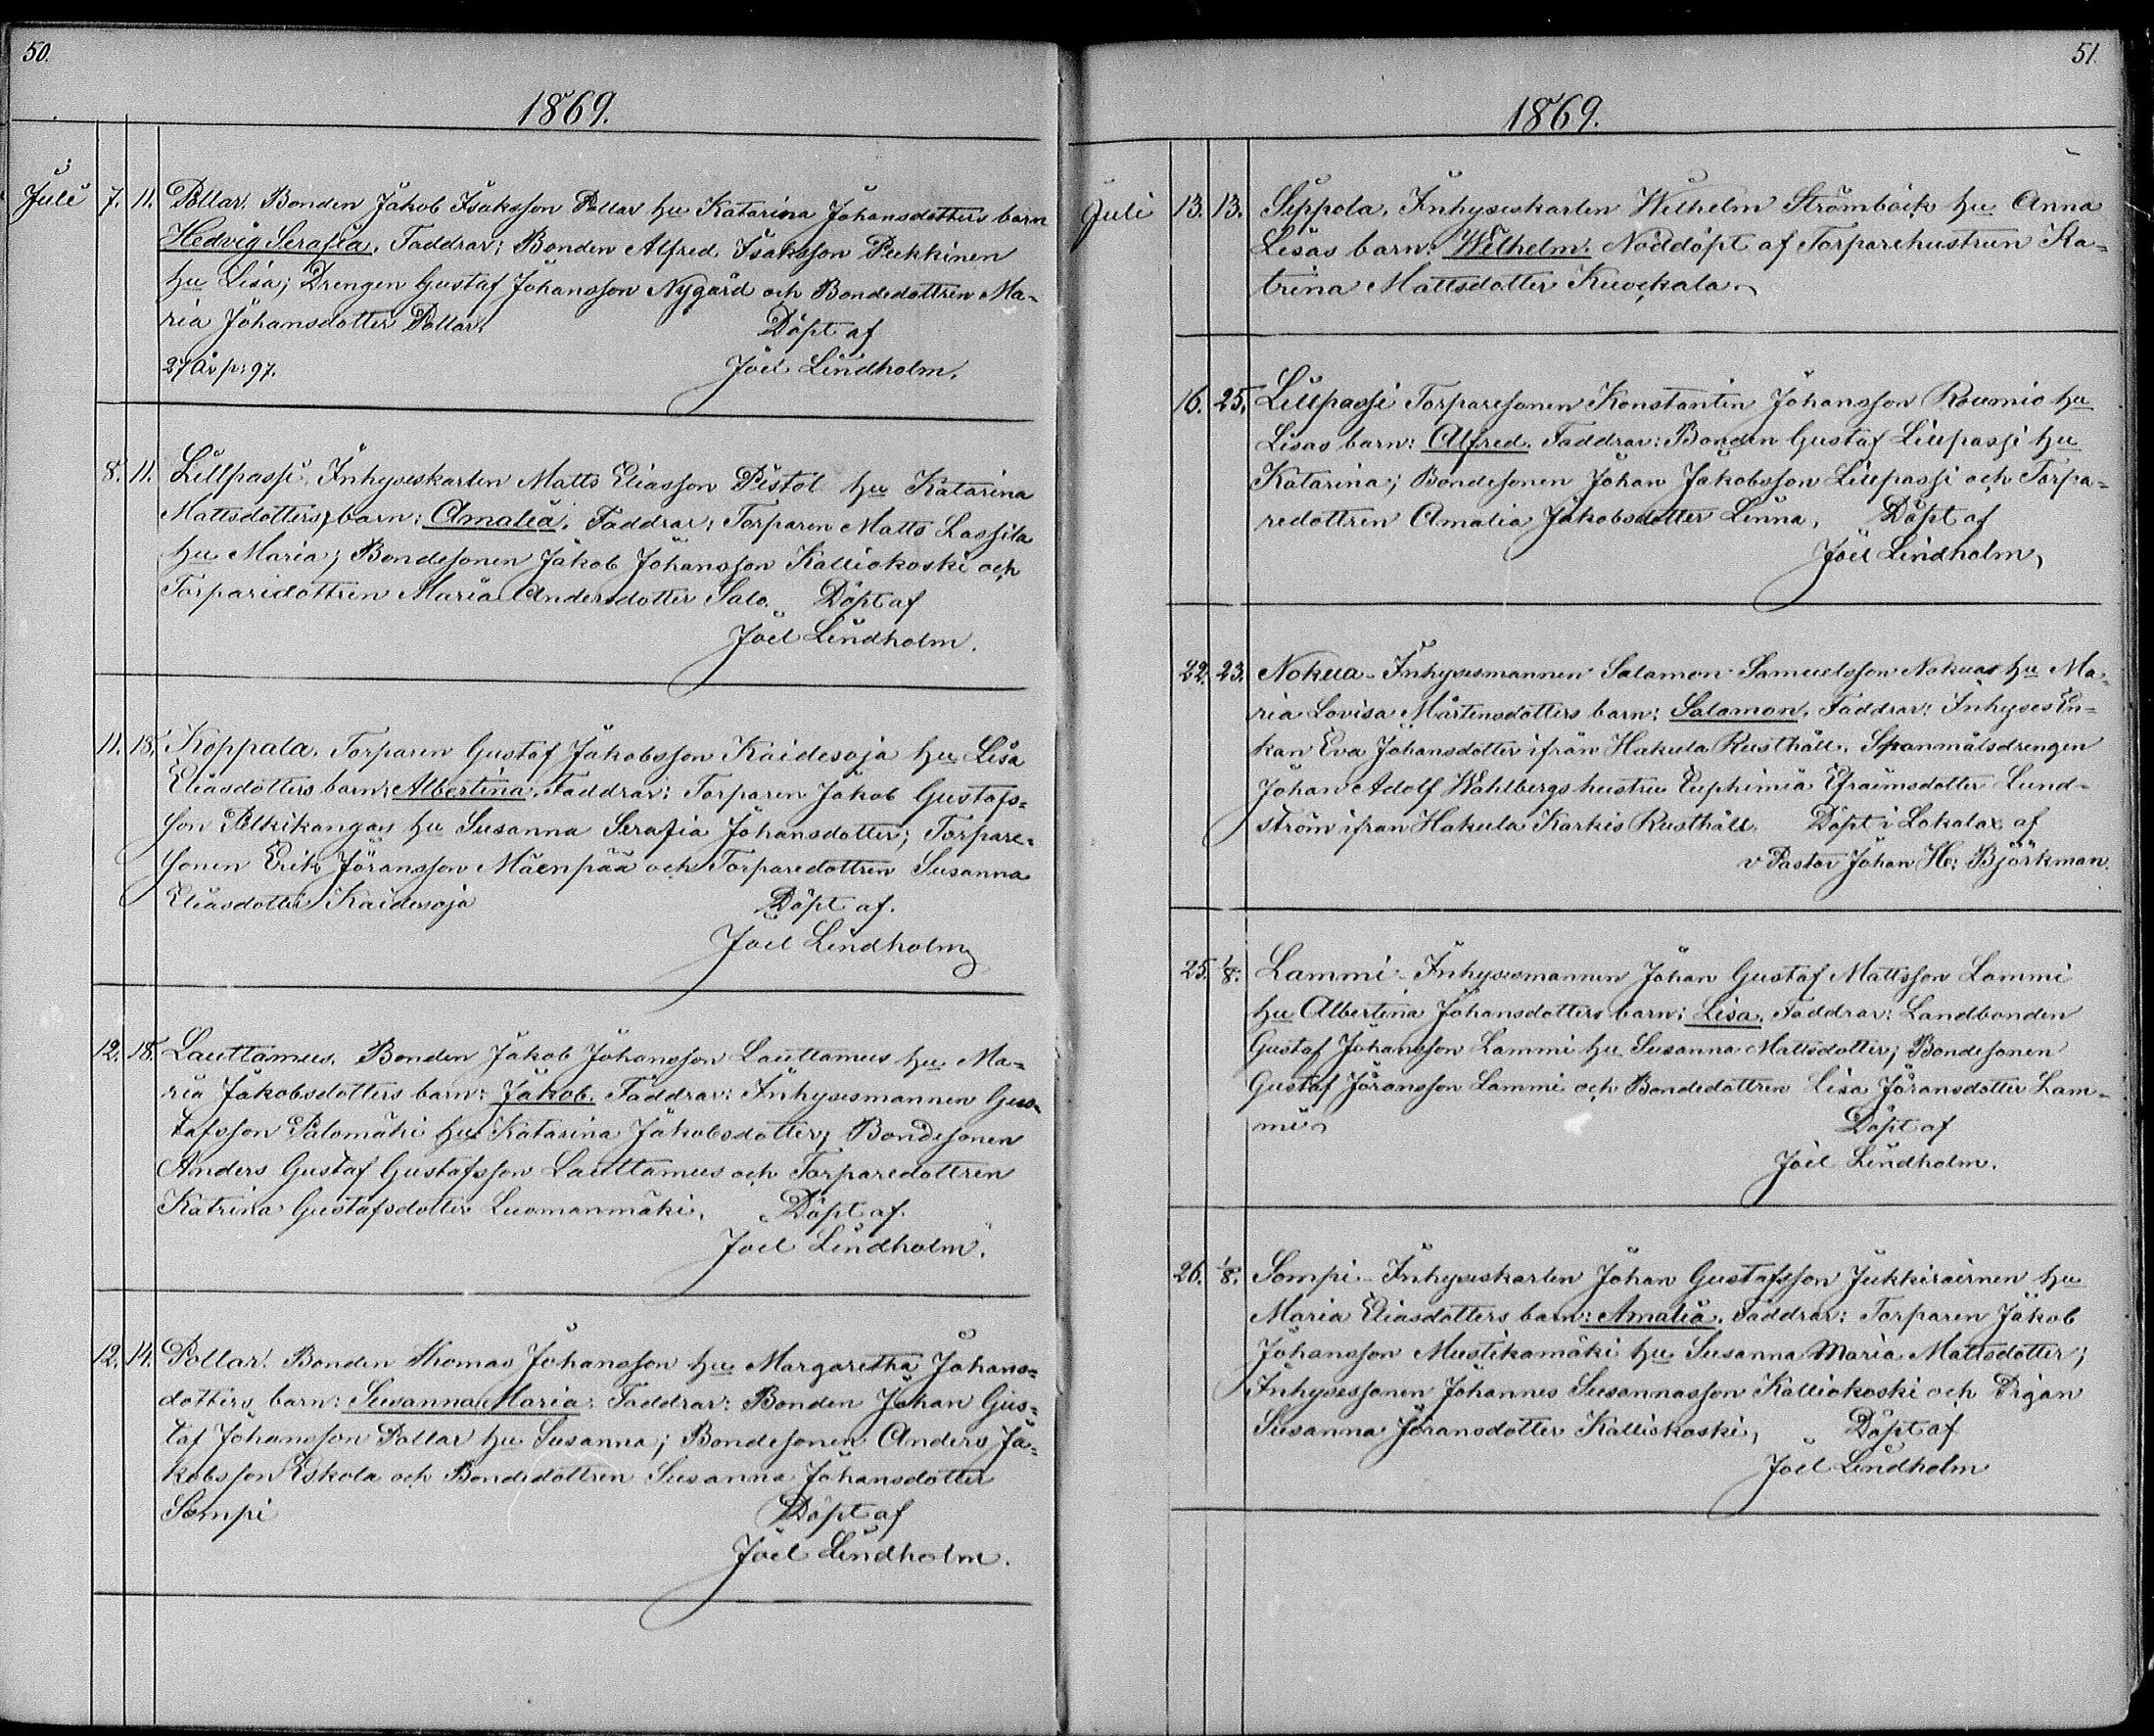 50.
1869.
Juli 7. 11. Pollar. Bonden Jakob Isaksson Pollar hu Katarina Johansdotters barn
Hedvig Serafia. Faddrar; Bonden Alfred Isaksson Pukkinen
hu Lisa; Drengen Gustaf Johansson Nygård och Bondedottren Ma-
ria Johansdotter Pollar. Döpt af
27 År p: 97. Joel Lindholm.
8. 11. Lillpassi, Inhyseskarlen Matts Eliasson Pistol hu Katarina
Mattsdotters barn: Amalia. Faddrar; Torparen Matts Lassila
hu Maria; Bondesonen Jakob Johansson Kalliokoski och
Torparedottren Maria Andersdotter Salo. Döpt af
Joel Lindholm.
11. 18. Koppala. Torparen Gustaf Jakobsson Kaidesoja hu Lisa
Eliasdotters barn: Albertina. Faddrar: Torparen Jakob Gustafs-
son Pelkikangas hu Susanna Serafia Johansdotter; Torpare-
sonen Erik Jöransson Mäenpää och Torparedottren Susanna
Eliasdotter Kaidesoja Döpt af.
Joel Lindholm
12. 18. Lauttamus. Bonden Jakob Johansson Lauttamus hu Ma-
ria Jakobsdotters barn: Jakob. Faddrar: Inhysesmannen Gus-
tafsson Palomäki hu Katarina Jakobsdotter; Bondesonen
Anders Gustaf Gustafsson Lauttamus och Torparedottren
Katrina Gustafsdotter Luomanmäki. Döpt af
Joel Lindholm.
12. 14. Pollar. Bonden Thomas Johansson hu Margaretha Johans-
dotters barn: Susanna Maria: Faddrar: Bonden Johan Gus-
taf Johansson Pollar hu Susanna; Bondesonen Anders Ja-
kobsson Eskola och Bondedottren Susanna Johansdotter
Sompi Döpt af
Joel Lindholm.
51.
1869.
Juli 13. 13. Seppola. Inhyseskarlen Wilhelm Strömbäck hu Anna
Lisas barn: Wilhelm. Nöddöpt af Torparehustrun Ka-
trina Mattsdotter Kuockala
16. 25. Lillpassi Torparesonen Konstantin Johansson Roumio hu
Lisas barn: Alfred. Faddrar: Bonden Gustaf Lillpassi hu
Katarina; Bondesonen Johan Jakobsson Lillpassi och Torpa-
redottren Amalia Jakobsdotter Linna. Döpt af
Joel Lindholm,
22. 23. Nokua. Inhysesmannen Salamon Samuelsson Nokuas hu Ma-
ria Lovisa Mårtensdotters barn: Salamon. Faddrar: Inhyses En-
kan Eva Johansdotter ifrån Hakula Rusthåll. Spanmålsdrengen
Johan Adolf Wahlbergs hustru Euphimia Efraimsdotter Lund-
ström ifrån Hakula Karkis Rusthåll. Döpt i Lokalax af
v Pastor Johan He: Björkman.
25. 1/8. Lammi. Inhysesmannen Johan Gustaf Mattsson Lammi
hu Albertina Johansdotters barn: Lisa. Faddrar: Landbonden
Gustaf Johansson Lammi hu Susanna Mattsdotter; Bondesonen
Gustaf Jöransson Lammi och Bondedottren Lisa Jöransdotter Lam-
mi Döpt af
Joel Lindholm.
26. 1/8. Sompi. Inhyseskarlen Johan Gustafsson Jukkirainen hu
Maria Eliasdotters barn: Amalia. Faddrar: Torparen Jakob
Johansson Mustikamäki hu Susanna Maria Mattsdotter;
Inhysessonen Johannes Susannasson Kalliokoski och Pigan
Susanna Jöransdotter Kalliokoski, Döpt af
Joel Lindholm